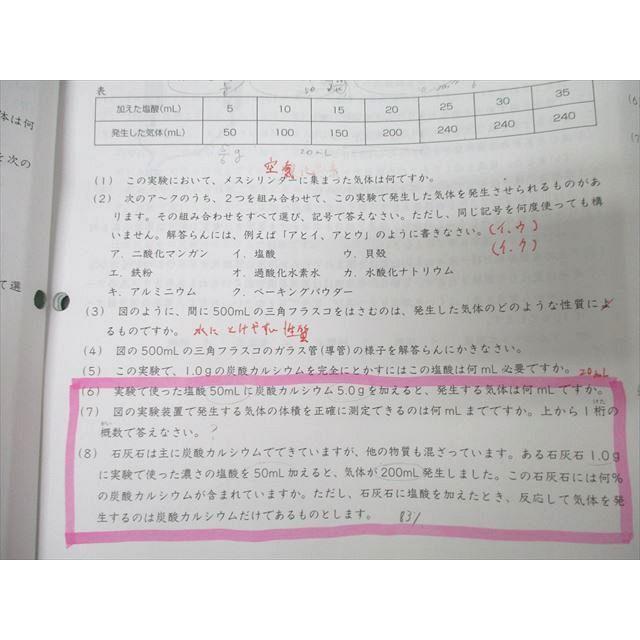 体は何
を次の
て選
表
加えた塩酸(mL) 5 10 15 20 25 30 35
発生した気体(mL) 50 100 150 200 240 240 240
20mL
空気
(1) この実験において、メスシリンダーに集まった気体は何ですか。
(2) 次のア〜クのうち、2つを組み合わせて、この実験で発生した気体を発生させられるものがあ
ります。その組み合わせをすべて選び、記号で答えなさい。ただし、同じ記号を何度使っても構
いません。解答らんには、例えば「アとイ、アとウ」のように書きなさい。(イ、ウ)
(イ、ク)
ア．二酸化マンガン イ．塩酸 ウ．貝殻
エ．鉄粉 オ．過酸化水素水 カ．水酸化ナトリウム
キ．アルミニウム ク．ベーキングパウダー
(3) 図のように、間に500mLの三角フラスコをはさむのは、発生した気体のどのような性質によ
るものですか。 水にとけやすい性質
(4) 図の500mLの三角フラスコのガラス管(導管)の様子を解答らんにかきなさい。
(5) この実験で、1.0gの炭酸カルシウムを完全にとかすにはこの塩酸は何mL必要ですか。 20mL
(6) 実験で使った塩酸50mLに炭酸カルシウム5.0gを加えると、発生する気体は何mLですか。
(7) 図の実験装置で発生する気体の体積を正確に測定できるのは何mLまでですか。上から1桁の
概数で答えなさい。?
(8) 石灰石は主に炭酸カルシウムでできていますが、他の物質も混ざっています。ある石灰石1.0g
に実験で使った濃さの塩酸を50mL加えると、気体が200mL発生しました。この石灰石には何%
の炭酸カルシウムが含まれていますか。ただし、石灰石に塩酸を加えたとき、反応して気体を発
生するのは炭酸カルシウムだけであるものとします。 83%